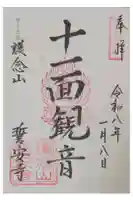 奉拝
令和八年
一月八日
十一面観音
護念山
誓安寺